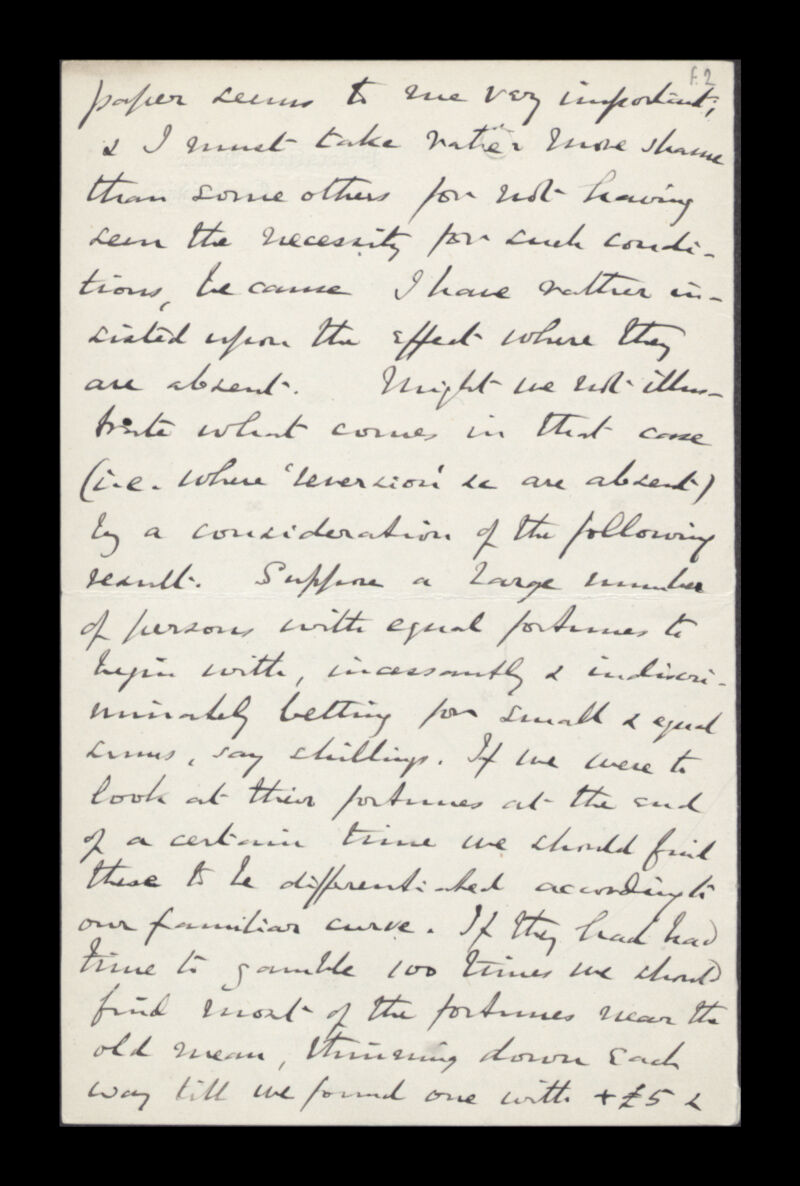 f.2
paper seems to me very important;
& I must take rather more shame
than some others for not having
seen the necessity for such condi-
tions, because I have rather in-
sisted upon the effect where they
are absent. Might we not illus-
trate what comes in that case
(i.e. where 'reversion' &c are absent)
by a consideration of the following
result. Suppose a large number
of persons with equal fortunes to
begin with, incessantly & indiscri-
minately betting for small & equal
sums, say shillings. If we were to
look at their fortunes at the end
of a certain time we should find
these to be differentiated according to
our familiar curve. If they had had
time to gamble 100 times we should
find most of the fortunes near the
old mean, thinning down each
way till we found one with +£5 &